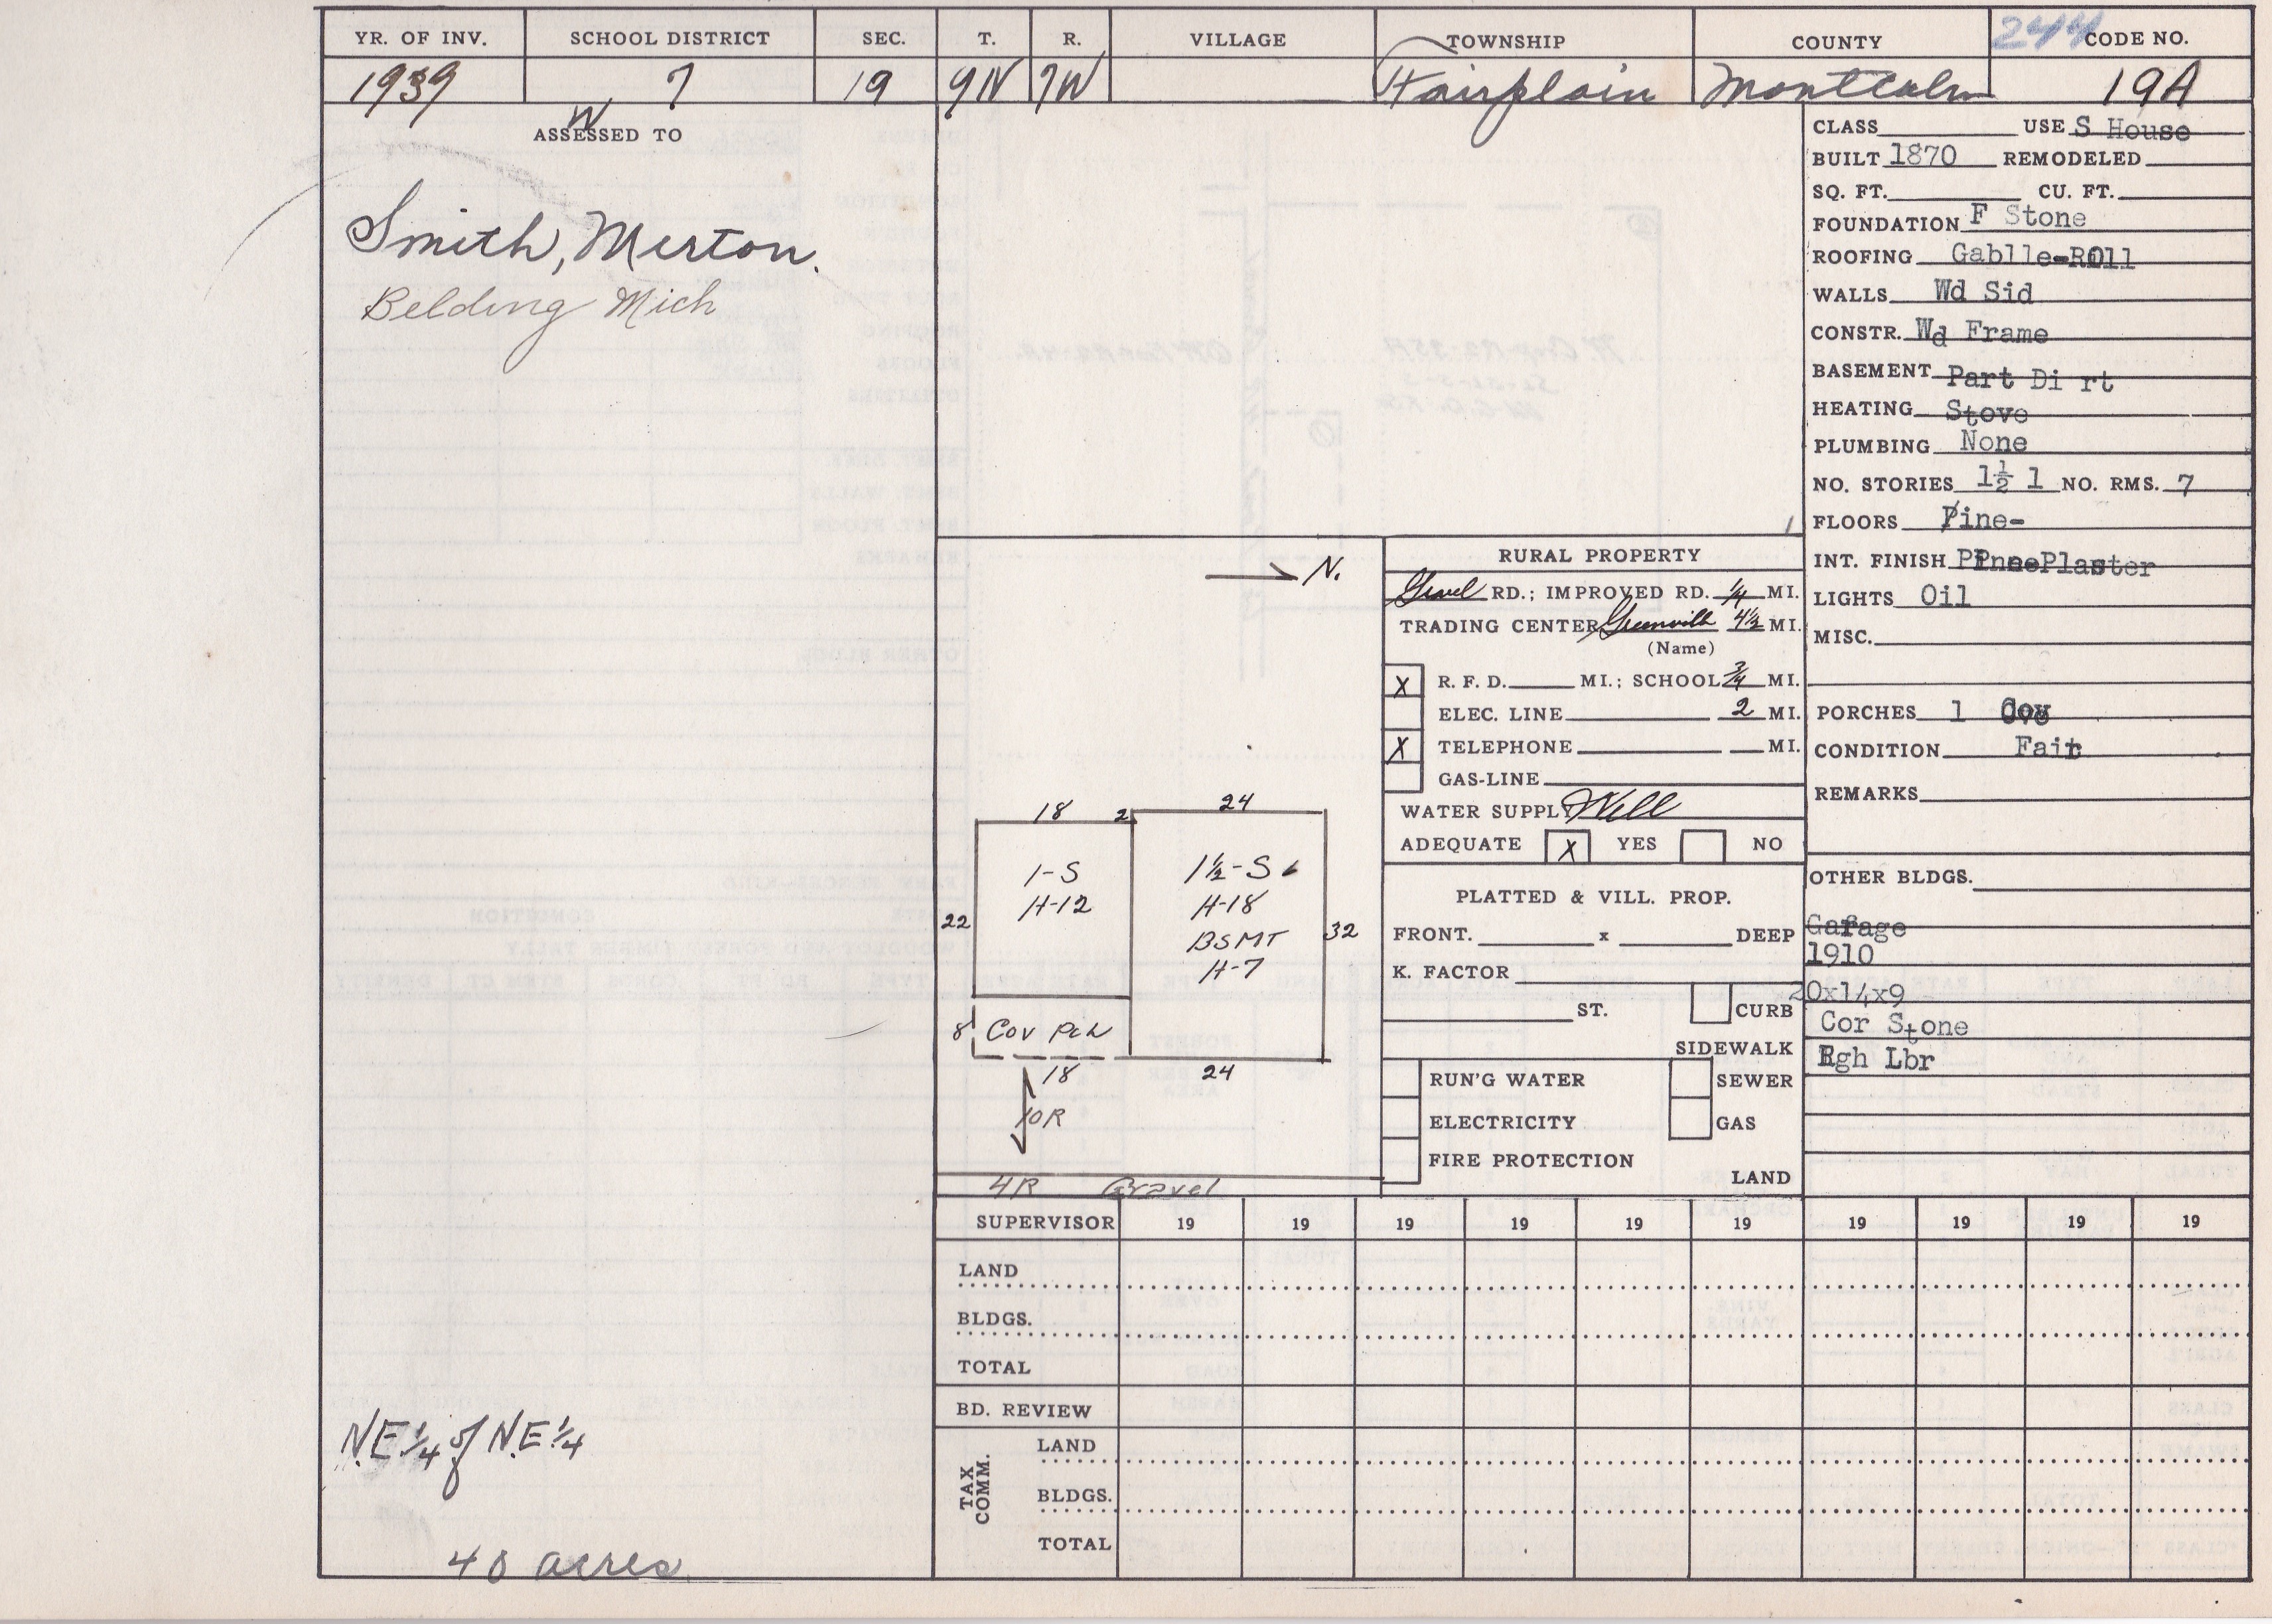 YR. OF INV. SCHOOL DISTRICT SEC. T. R. VILLAGE TOWNSHIP COUNTY 244 CODE NO.
1939 7 19 9N 7W Fairplain Montcalm 19A
W
ASSESSED TO
Smith, Merton.
Belding Mich
N.E 1/4 of N.E 1/4
40 acres
CLASS USE S House
BUILT 1870 REMODELED
SQ. FT. CU. FT.
FOUNDATION F Stone
ROOFING Gablle-ROll
WALLS Wd Sid
CONSTR. Wd Frame
BASEMENT Part Di rt
HEATING Stove
PLUMBING None
NO. STORIES 1½ 1 NO. RMS. 7
FLOORS Pine-
INT. FINISH Plaster
LIGHTS Oil
MISC.
PORCHES 1 Cov
CONDITION Fair
REMARKS
OTHER BLDGS.
Garage
1910
20x14x9
Cor Stone
Rgh Lbr
N.
18 2 24
1-S 1½-S
H-12 H-18
22 BSMT 32
H-7
8 Cov Pch
18 24
10R
4R Gravel
RURAL PROPERTY
Gravel RD.; IMPROVED RD. 1/4 MI.
TRADING CENTER Greenville 4½ MI.
(Name)
X R. F. D. MI.; SCHOOL 3/4 MI.
ELEC. LINE 2 MI.
X TELEPHONE MI.
GAS-LINE
WATER SUPPLY Well
ADEQUATE X YES NO
PLATTED & VILL. PROP.
FRONT. x DEEP
K. FACTOR
ST. CURB
SIDEWALK
RUN'G WATER SEWER
ELECTRICITY GAS
FIRE PROTECTION
LAND
SUPERVISOR 19 19 19 19 19 19 19 19 19 19
LAND
BLDGS.
TOTAL
BD. REVIEW
TAX COMM.
LAND
BLDGS.
TOTAL